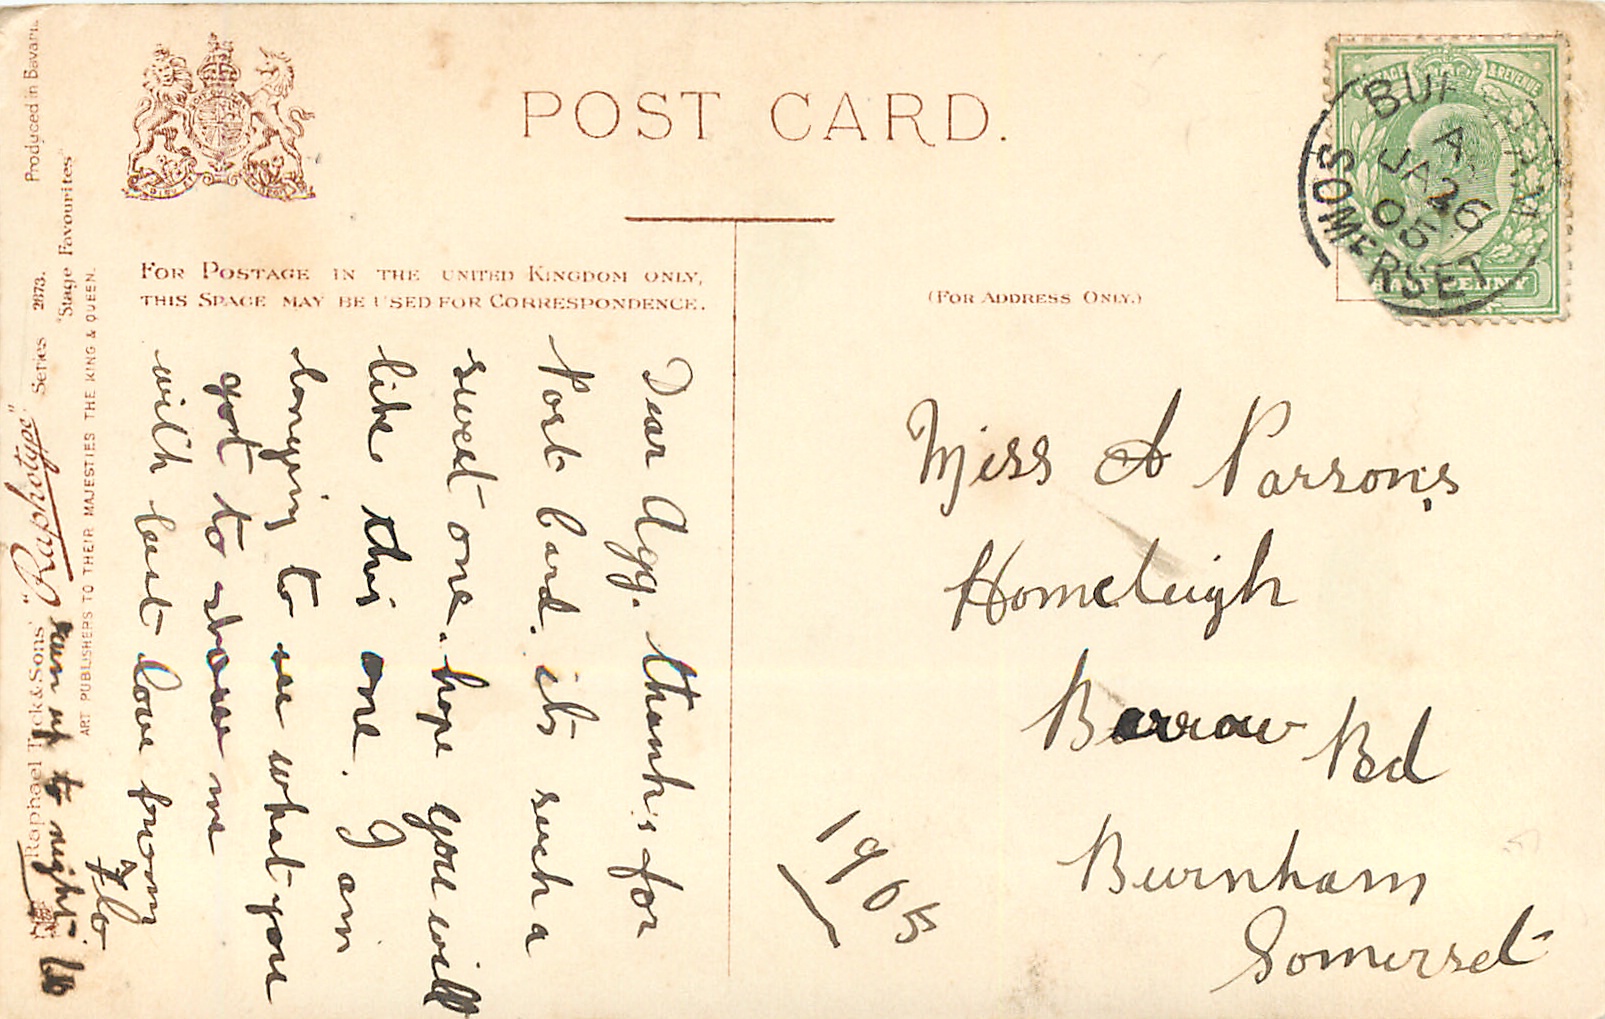 POST CARD.
FOR POSTAGE IN THE UNITED KINGDOM ONLY,
THIS SPACE MAY BE USED FOR CORRESPONDENCE.
(FOR ADDRESS ONLY.)
Dear Agg. thank's for
Post Card. it's such a
sweet one. hope you will
like this one. I am
longing to see what you
got to show me
with best love from
Flo
run up to night
Miss A Parsons,
Homeleigh
Barrow Rd
Burnham
Somerset
1905
POSTAGE & REVENUE
HALFPENNY
A
JA 26
05
SOMERSET
Raphael Tuck & Sons' "Raphotype" Series 2873. Produced in Bavaria.
"Stage Favourites"
ART PUBLISHERS TO THEIR MAJESTIES THE KING & QUEEN.